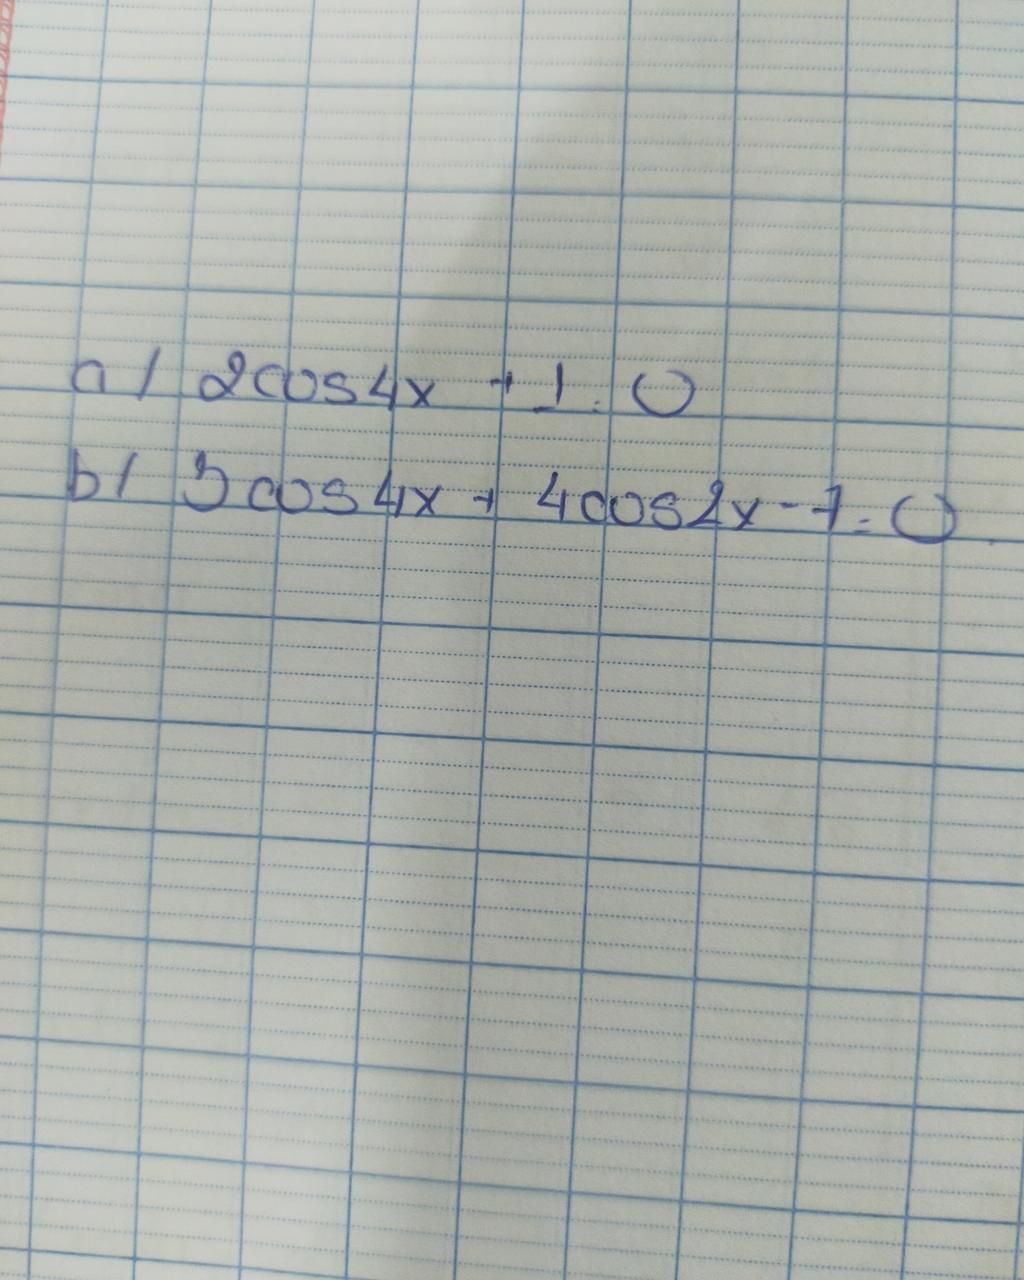 a/ 2cos4x + 1 = 0
b/ 5cos4x + 4cos2x - 1 = 0